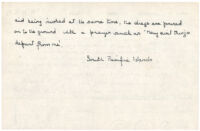 and being invoked at the same time, the dregs are poured
on to the ground with a prayer such as "May evil things
depart from me".
South Pacific Islands